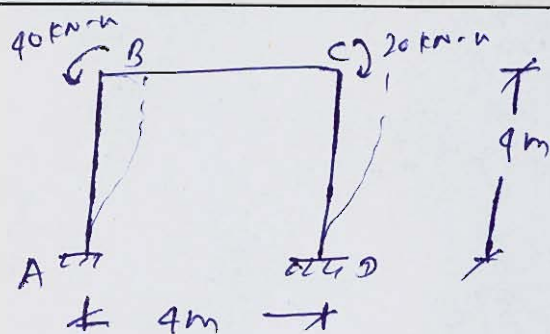 40 KN-m B C 20 KN-m
4m
A D
4m